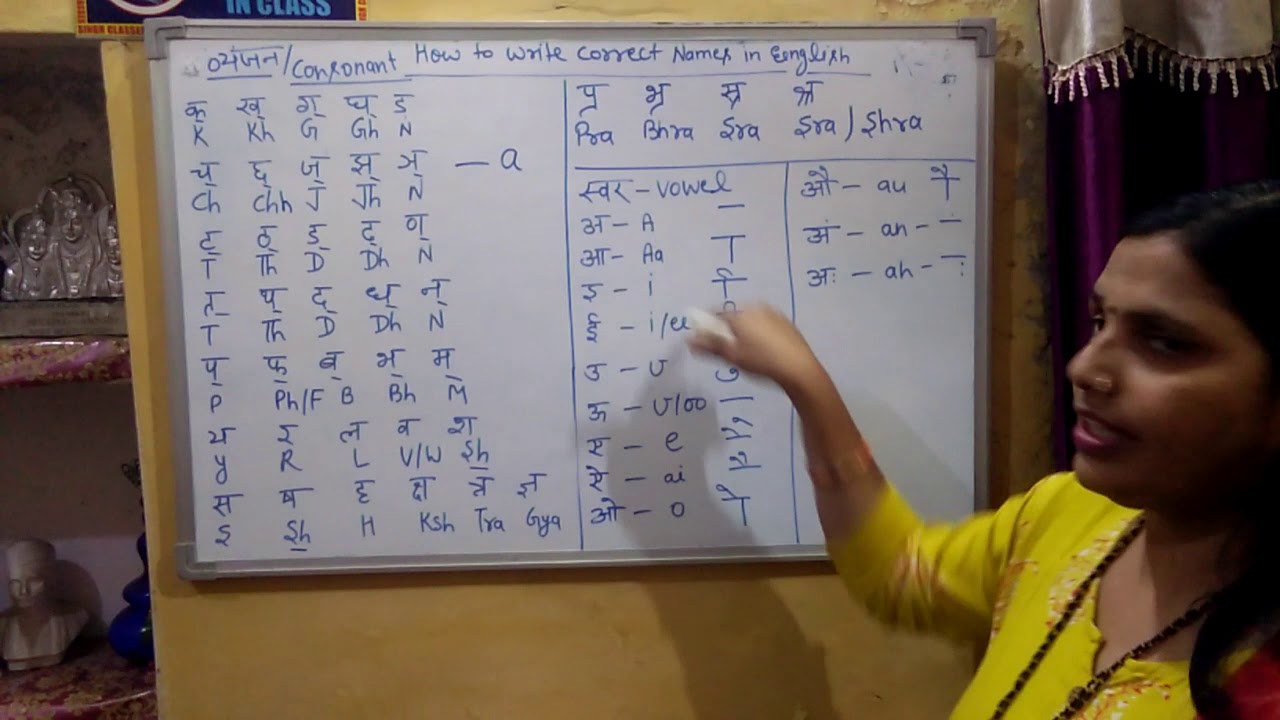 IN CLASS
SINGH CLASSES
व्यंजन/Consonant How to write correct Names in English
क् ख् ग् घ् ङ
K Kh G Gh N
च् छ् ज् झ् ञ् — a
Ch Chh J Jh N
ट् ठ् ड् ढ् ण्
T Th D Dh N
त् थ् द् ध् न्
T Th D Dh N
प् फ् ब् भ् म्
P Ph/F B Bh M
य र ल व श
y R L V/W Sh
स ष ह क्ष त्र ज्ञ
S Sh H Ksh Tra Gya
प्र भ्र स्र श्र
Pra Bhra Sra Sra/Shra
स्वर - vowel
अ - A
आ - Aa ा
इ - i ि
ई - i/ee
उ - U
ऊ - U/oo
ए - e
ऐ - ai
ओ - o ो
औ - au ौ
अं - an - ं
अः - ah - ः